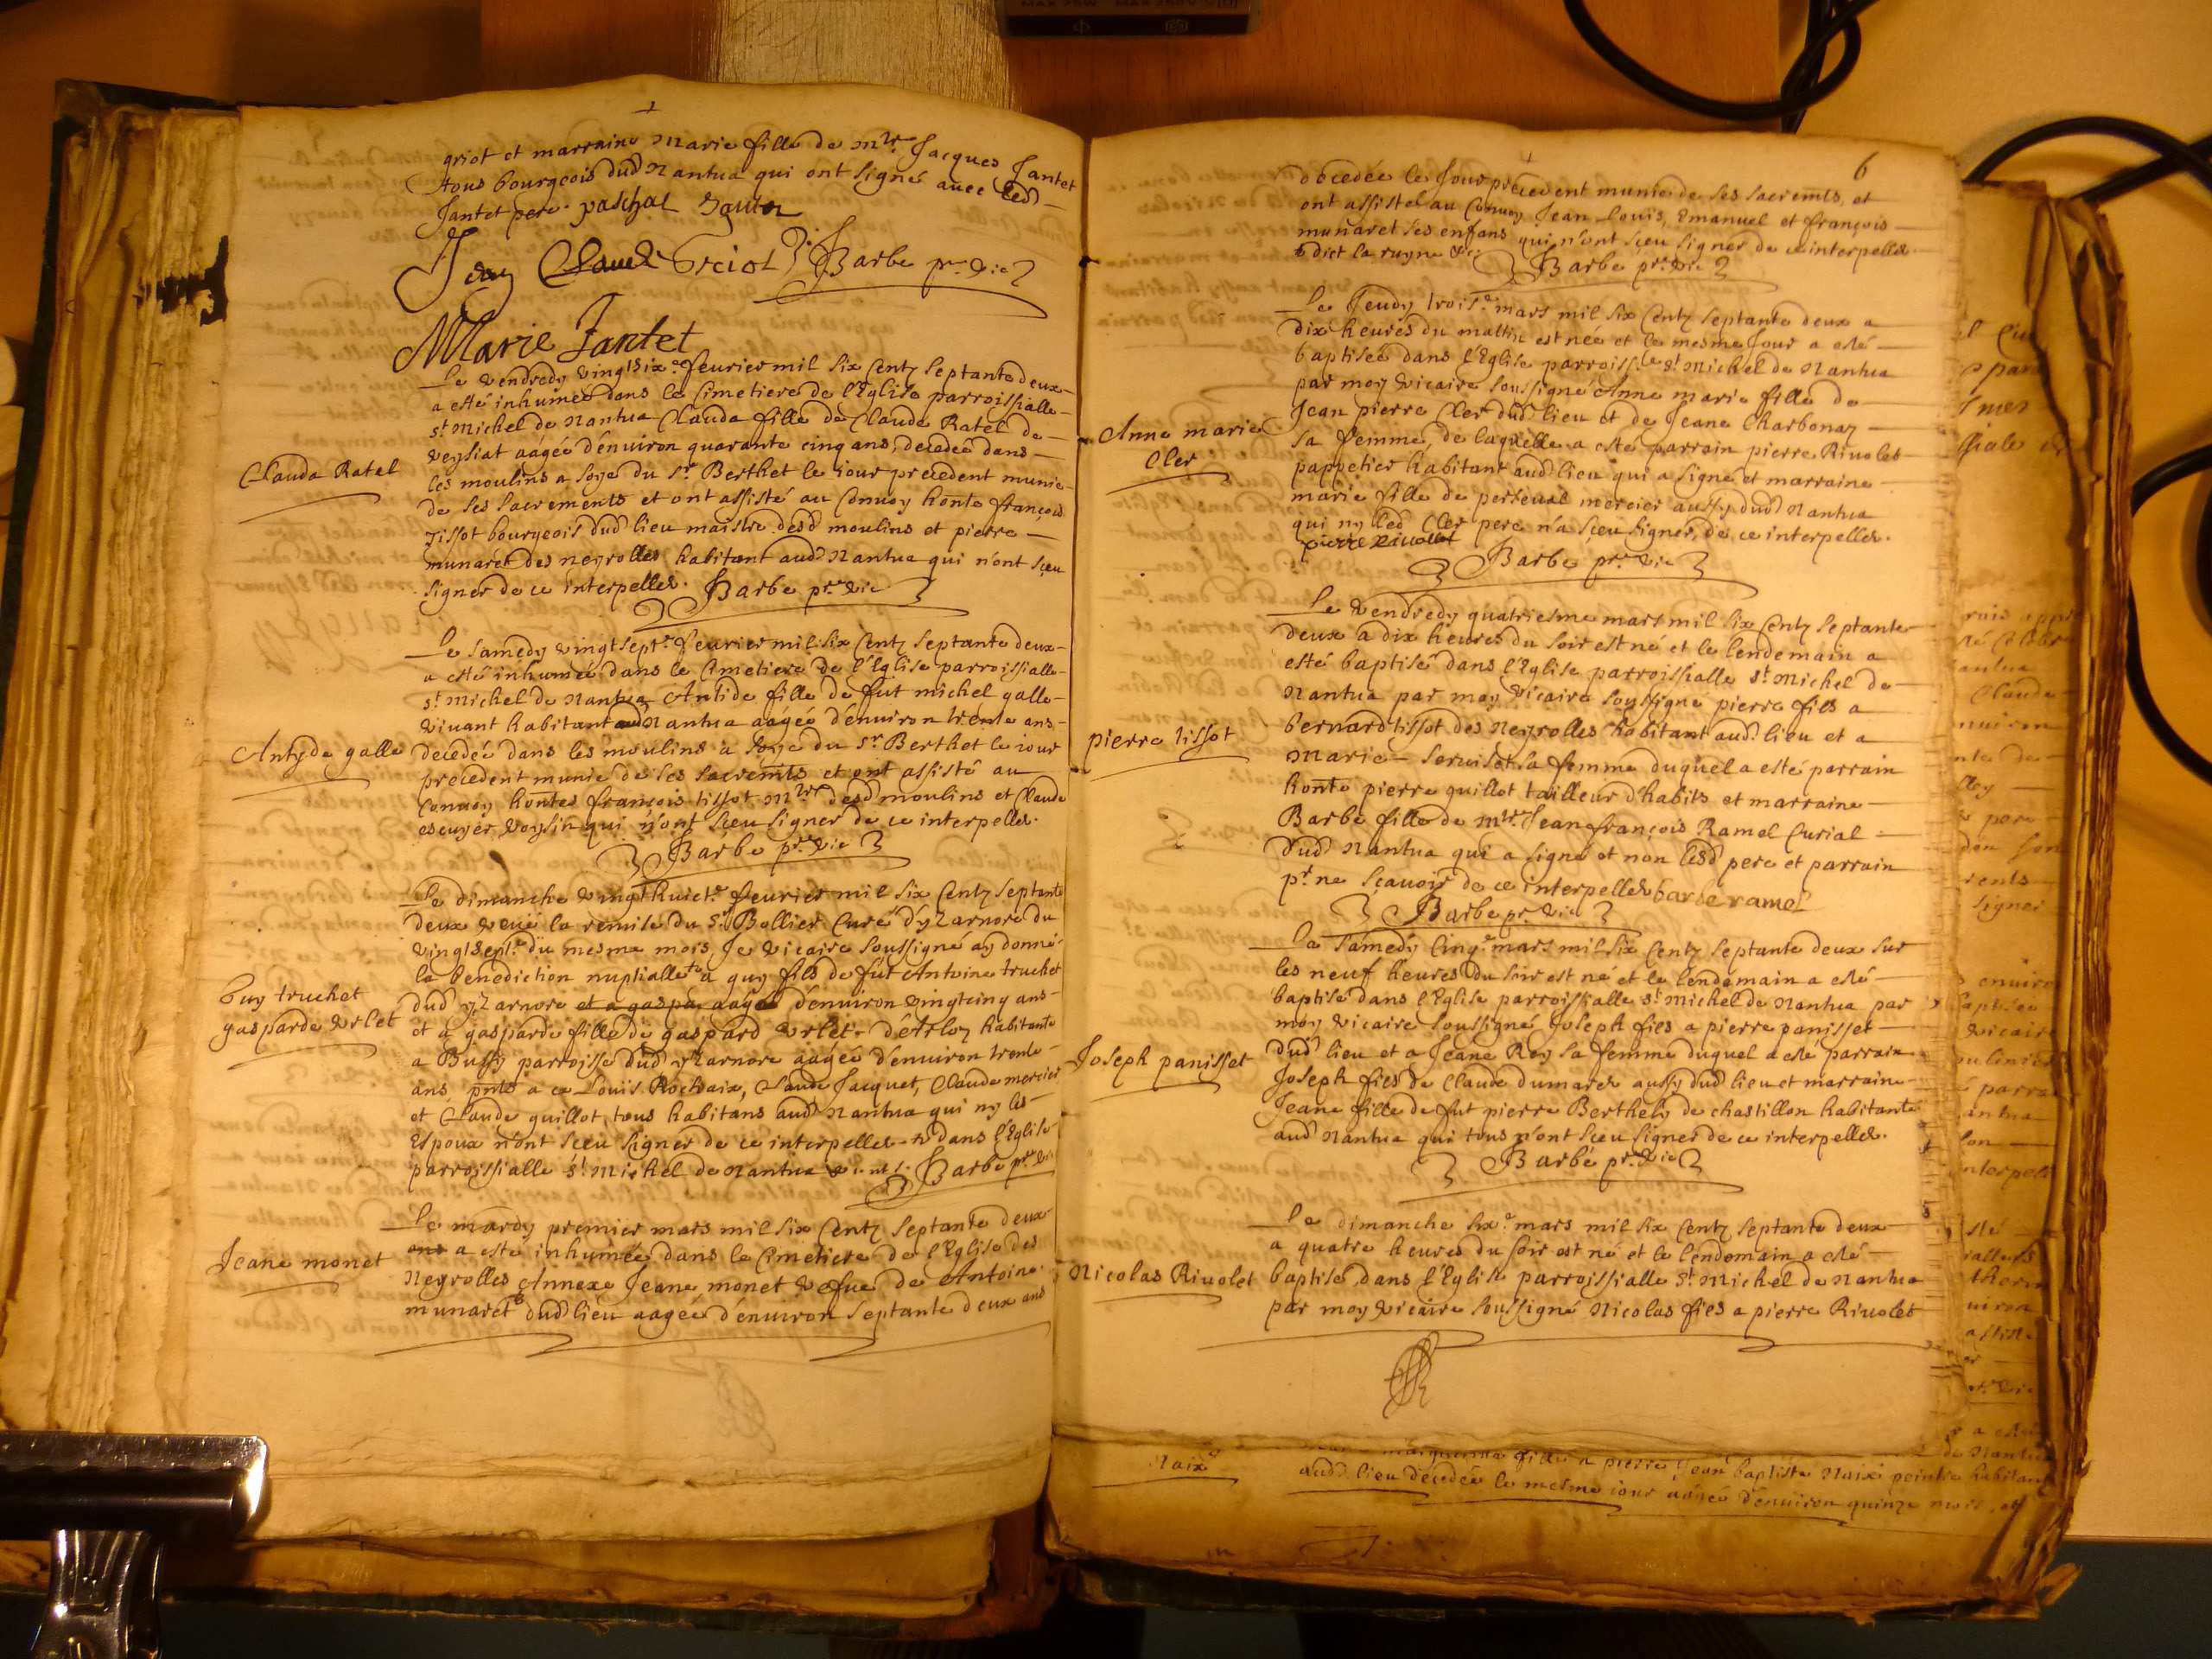 griot et marraine Marie fille de mtre Jacques Jantet
tous bourgeois dud Nantua qui ont signé avec led
Jantet pere. paschal
Jean Claude Griot Barbe pre vic
Marie Jantet
Le vendredy vingt six.e feurier mil six Centz septante deux
a esté inhumée dans le Cimetiere de l'Eglise parroissialle
st Michel de Nantua Clauda fille de Claude Ratel de
veysiat aâgée d'enuiron quarante cinq ans, decedée dans
Clauda Ratel
les moulins a soye du sr Berthet le iour precedent munie
de ses sacrements et ont assisté au Conuoy honte françois
tissot bourgeois dud lieu maistre desd moulins et pierre
munaret des neyrolles habitant aud Nantua qui n'ont sçeu
signer de ce interpellez. Barbe pre vic
Le samedy vingt sept.e feurier mil six Centz septante deux
a esté inhumée dans le Cimetiere de l'Eglise parroissialle
st Michel de Nantua Antide fille de fut michel galle
viuant habitant aud Nantua aagée d'enuiron trente ans
Antyde galle
decedée dans les moulins a soye du sr Berthet le iour
precedent munie de ses sacremts et ont assisté au
Conuoy hontes françois tissot mtre desd moulins et Claude
escuyer voysin qui n'ont sçeu signer de ce interpellez.
Barbe pre vic
Le dimanche vingt huict.e feurier mil six Centz septante
deux veuë la remise du Sr Bollier Curé d'yzarnore du
vingtsept.e du mesme mois, Je vicaire soussigné ay donné
la benediction nuptialle a guy fils de fut Antoine truchet
guy truchet
gasparde vrlet
dud yzarnore et a gaspar aagé d'enuiron vingtcinq ans
et a gasparde fille de gaspard vrlet d'Arloz habitante
a Bussy parroisse dud yzarnore aagée d'enuiron trente
ans, pnts a ce Louis Rochaix, Claude Jacquet, Claude mercier
et Claude guillot, tous habitans aud Nantua qui ny les
Espoux n'ont sceu signer de ce interpellez dans l'Eglise
parroissialle St Michel de Nantua Barbe pre vic
Le mardy premier mars mil six Centz septante deux
ans a esté inhumée dans le Cimetiere de l'Eglise des
Jeane monet
Neyrolles Annexe Jeane monet vefue de Antoine
munaret dud lieu aagée d'enuiron septante deux ans
6
decedée le Jour precedent munie de ses sacremts, et
ont assisté au Conuoy Jean Louis, Emanuel et françois
munaret ses enfans qui n'ont sçeu signer de ce interpellez
Barbe pre vic
Le Jeudy trois.e mars mil six Centz septante deux a
dix heures du mattin est née et le mesme Jour a esté
baptisée dans l'Eglise parroissle st Michel de Nantua
par moy vicaire soussigné Anne marie fille de
Jean pierre Cler dud lieu et de Jeane Charbonay
Anne marie
Cler
sa femme, de laquelle a esté parrain pierre Riuolet
pappetier habitant aud lieu qui a signé et marraine
marie fille de perceual mercier aussy dud Nantua
qui ny led Cler pere n'a sçeu signer, de ce interpellez.
pierre Riuollet
Barbe pre vic
Le vendredy quatriesme mars mil six Centz septante
deux a dix heures du soir est né et le lendemain a
esté baptisé dans l'Eglise parroissialle st Michel de
Nantua par moy vicaire soussigné pierre fils a
pierre tissot
bernard tissot des Neyrolles habitant aud lieu et a
Marie sa femme duquel a esté parrain
honte pierre guillot tailleur d'habits et marraine
Barbe fille de mtre Jean françois Ramel Curial
dud Nantua qui a signé et non lesd pere et parrain
pr ne sçauoir de ce interpellez barbe ramel
Barbe pre vic
Le samedy Cinq.e mars mil six Centz septante deux sur
les neuf heures du soir est né et le lendemain a esté
baptisé dans l'Eglise parroissialle st Michel de Nantua par
moy vicaire soussigné Joseph fils a pierre panisset
Joseph panisset
dud lieu et a Jeane Rey sa femme duquel a esté parrain
Joseph fils de Claude dumarez aussy dud lieu et marraine
Jeane fille de fut pierre Berthely de chastillon habitante
aud Nantua qui tous n'ont sceu signer de ce interpellez.
Barbe pre vic
Le dimanche six.e mars mil six Centz septante deux
a quatre heures du soir est né et le lendemain a esté
Nicolas Riuolet
baptisé dans l'Eglise parroissialle st Michel de Nantua
par moy vicaire soussigné Nicolas fils a pierre Riuolet
Naix
fille a pierre Jean baptiste Naix peintre habitant
aud lieu decedée le mesme iour aagée d'enuiron quinze mois, et